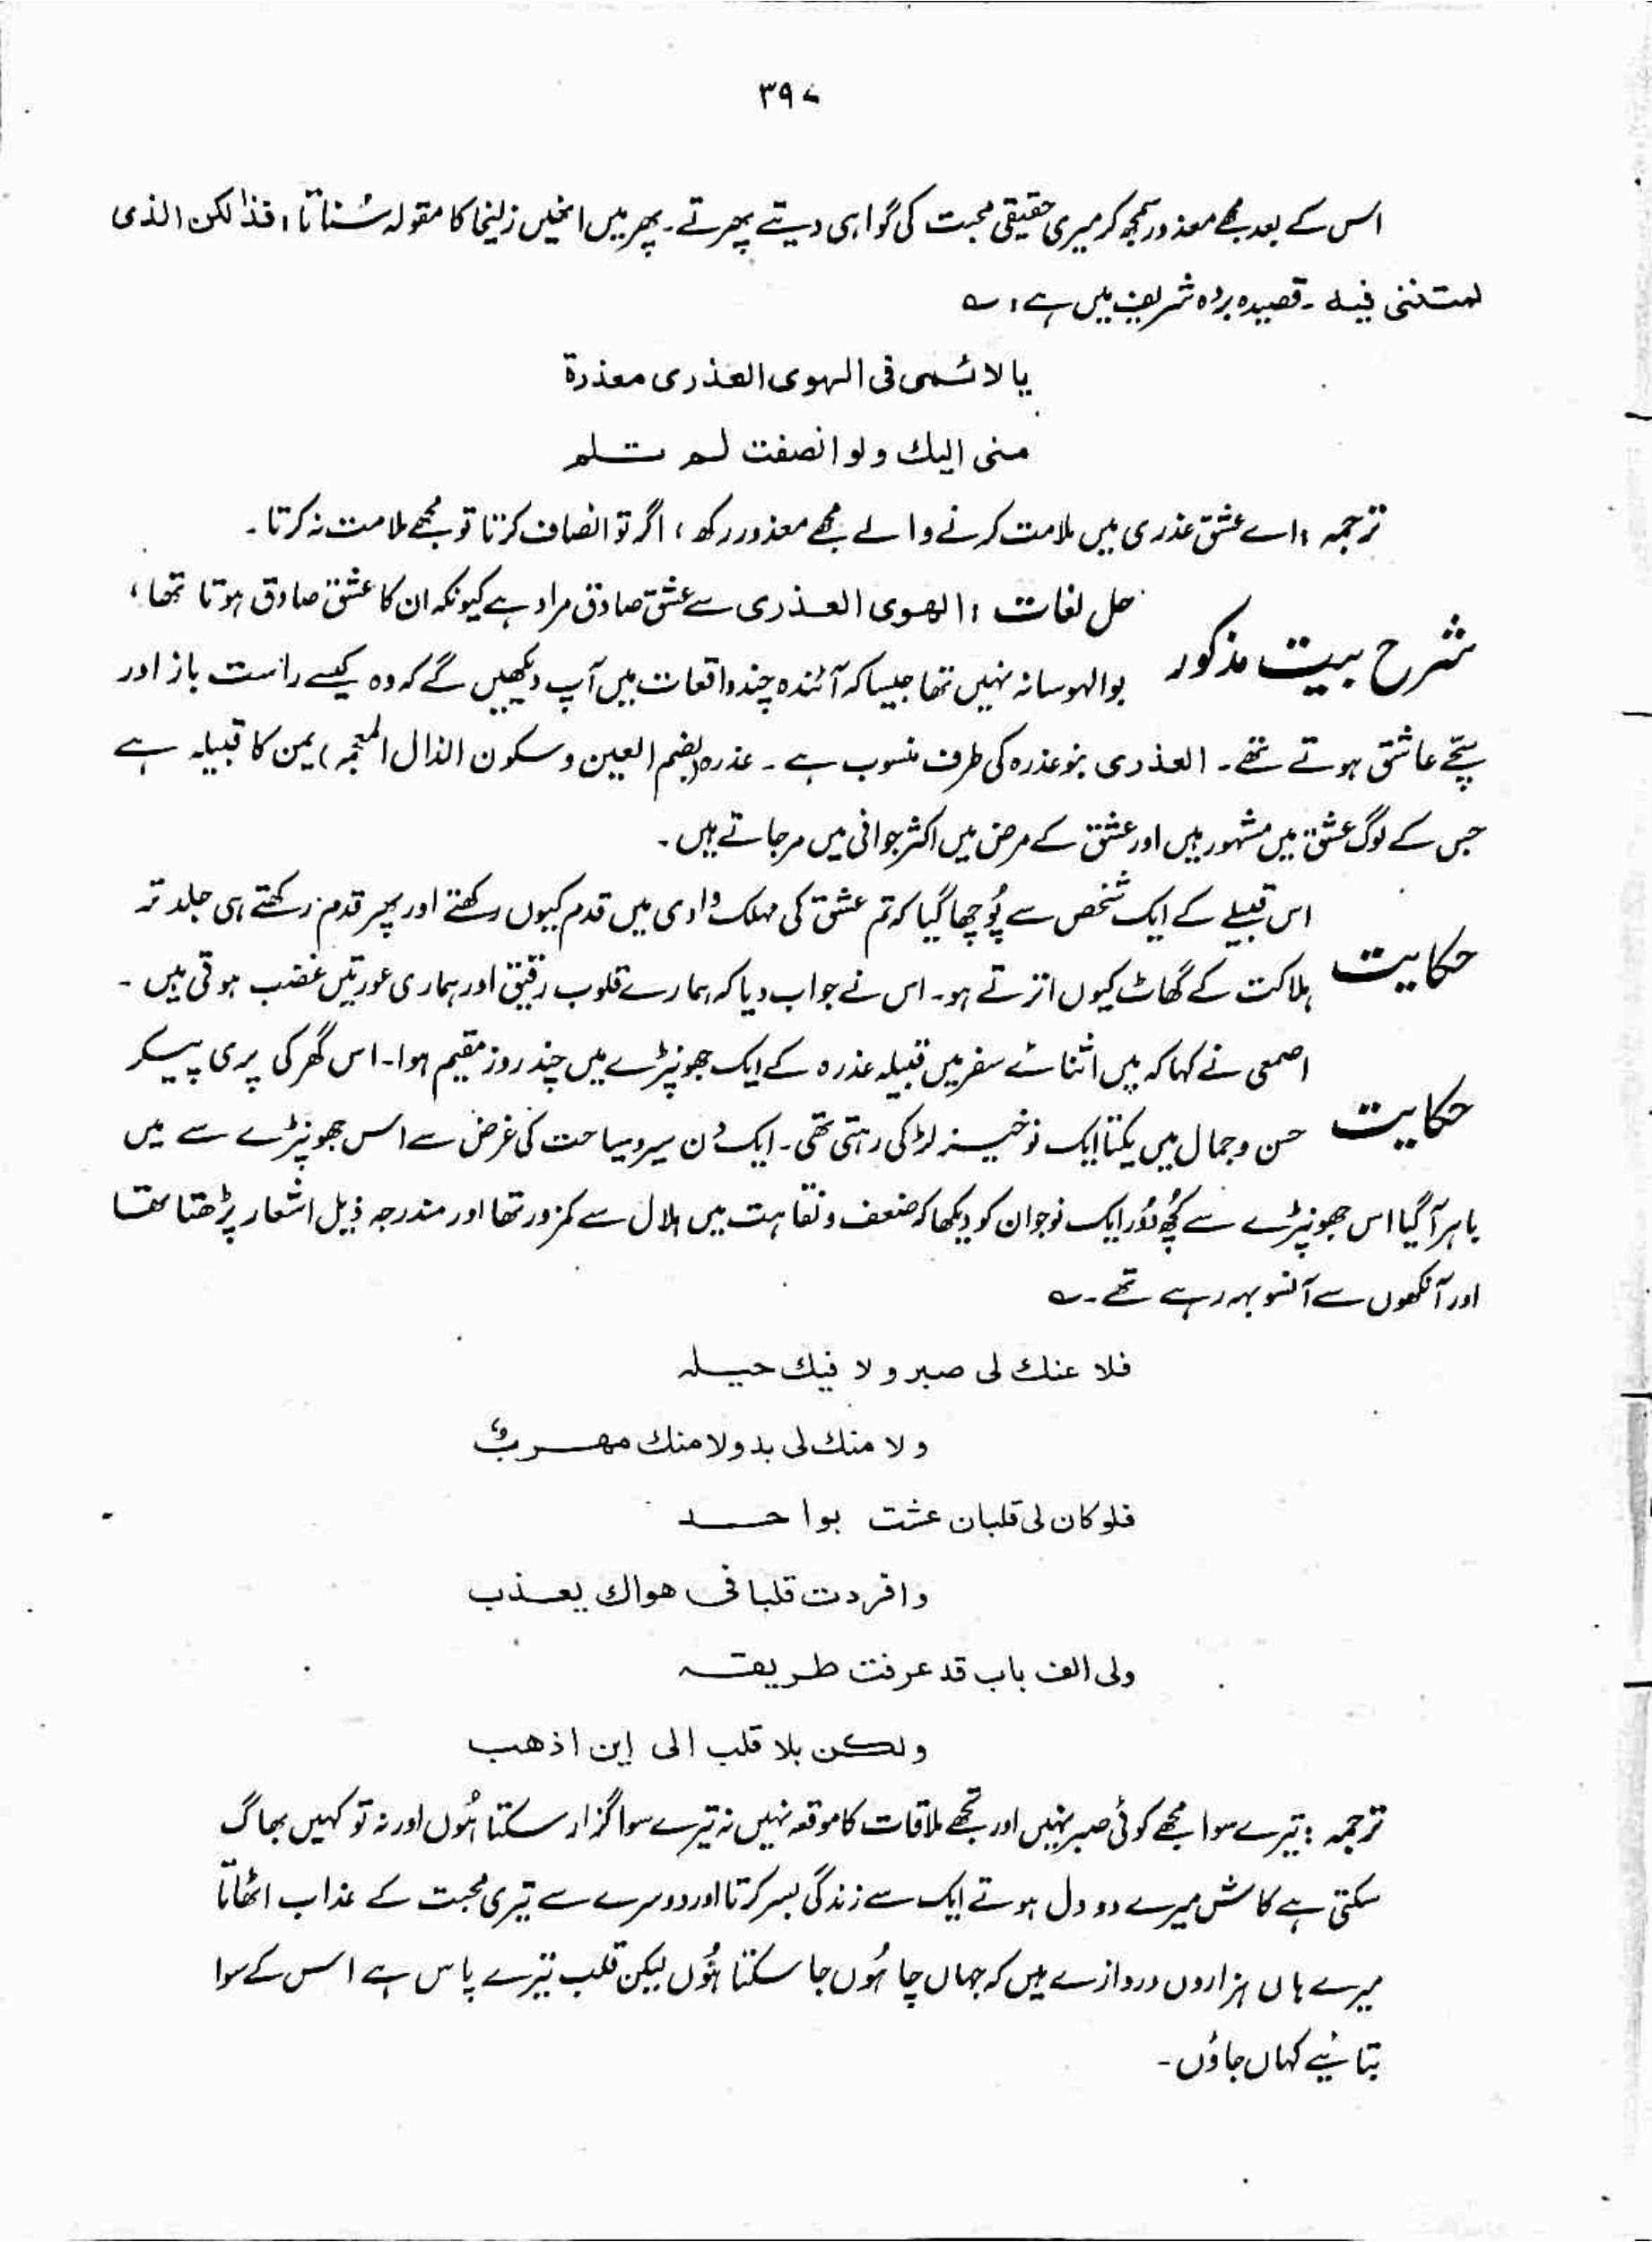 ۳۹۷
اس کے بعد مجھے معذور سمجھ کر میری حقیقی محبت کی گواہی دیتے پھرتے۔ پھر میں انھیں زلیخا کا مقولہ سُناتا، فذٰلکن الذی
لمتننی فیہ ۔ قصیدہ بردہ شریف میں ہے: ؎
یا لائمی فی الهوی العذری معذرة
منی الیك ولو انصفت لم تلم
ترجمہ: اے عشق عذری میں ملامت کرنے والے مجھے معذور رکھ، اگر تو انصاف کرتا تو مجھے ملامت نہ کرتا۔
شرح بیت مذکور
حل لغات: الھوی العذری سے عشق صادق مراد ہے کیونکہ ان کا عشق صادق ہوتا تھا،
بوالہوسانہ نہیں تھا جیسا کہ آئندہ چند واقعات میں آپ دیکھیں گے کہ وہ کیسے راست باز اور
سچّے عاشق ہوتے تھے۔ العذری بنو عذرہ کی طرف منسوب ہے۔ عذرہ (بضم العین وسکون الذال المعجمہ) یمن کا قبیلہ ہے
جس کے لوگ عشق میں مشہور ہیں اور عشق کے مرض میں اکثر جوانی میں مر جاتے ہیں۔
حکایت
اس قبیلے کے ایک شخص سے پُوچھا گیا کہ تم عشق کی مہلک وادی میں قدم کیوں رکھتے اور پھر قدم رکھتے ہی جلد تر
ہلاکت کے گھاٹ کیوں اترتے ہو۔ اس نے جواب دیا کہ ہمارے قلوب رقیق اور ہماری عورتیں غضب ہوتی ہیں۔
حکایت
اصمعی نے کہا کہ میں اثنائے سفر میں قبیلہ عذرہ کے ایک جھونپڑے میں چند روز مقیم ہوا۔ اس گھر کی پری پیکر
حسن وجمال میں یکتا ایک نوخیز لڑکی رہتی تھی۔ ایک دن سیر وسیاحت کی غرض سے اس جھونپڑے سے میں
باہر آگیا اس جھونپڑے سے کچھ دُور ایک نوجوان کو دیکھا کہ ضعف ونقاہت میں ہلال سے کمزور تھا اور مندرجہ ذیل اشعار پڑھتا تھا
اور آنکھوں سے آنسو بہہ رہے تھے۔ ؎
فلا عنك لی صبر ولا فیك حیلہ
ولا منك لی بد ولا منك مهربٌ
فلو کان لی قلبان عشت بواحد
وافردت قلبا فی هواك یعذب
ولی الف باب قد عرفت طریقہ
ولکن بلا قلب الی این اذهب
ترجمہ: تیرے سوا مجھے کوئی صبر نہیں اور تجھے ملاقات کا موقعہ نہیں نہ تیرے سوا گزار سکتا ہُوں اور نہ تو کہیں بھاگ
سکتی ہے کاش میرے دو دل ہوتے ایک سے زندگی بسر کرتا اور دوسرے سے تیری محبت کے عذاب اٹھاتا
میرے ہاں ہزاروں دروازے ہیں کہ جہاں چاہُوں جا سکتا ہُوں لیکن قلب تیرے پاس ہے اس کے سوا
بتائیے کہاں جاؤں۔